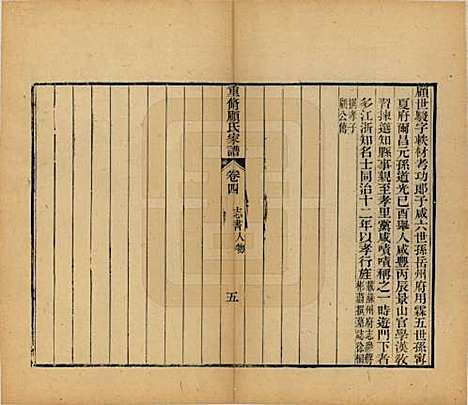 顧世駿字軼材考功郎予咸六世孫岳州府用霖五世孫寧
夏府爾昌元孫道光己酉舉人咸豐丙辰景山官學漢教
習揀選知縣事親至孝里黨咸嘖嘖稱之一時遊門下者
多江浙知名士同治十二年以孝行旌
蘇州府志
撰墓誌徐
撰孝子
顧公傳
重脩顧氏家譜
卷四
志書人物
五